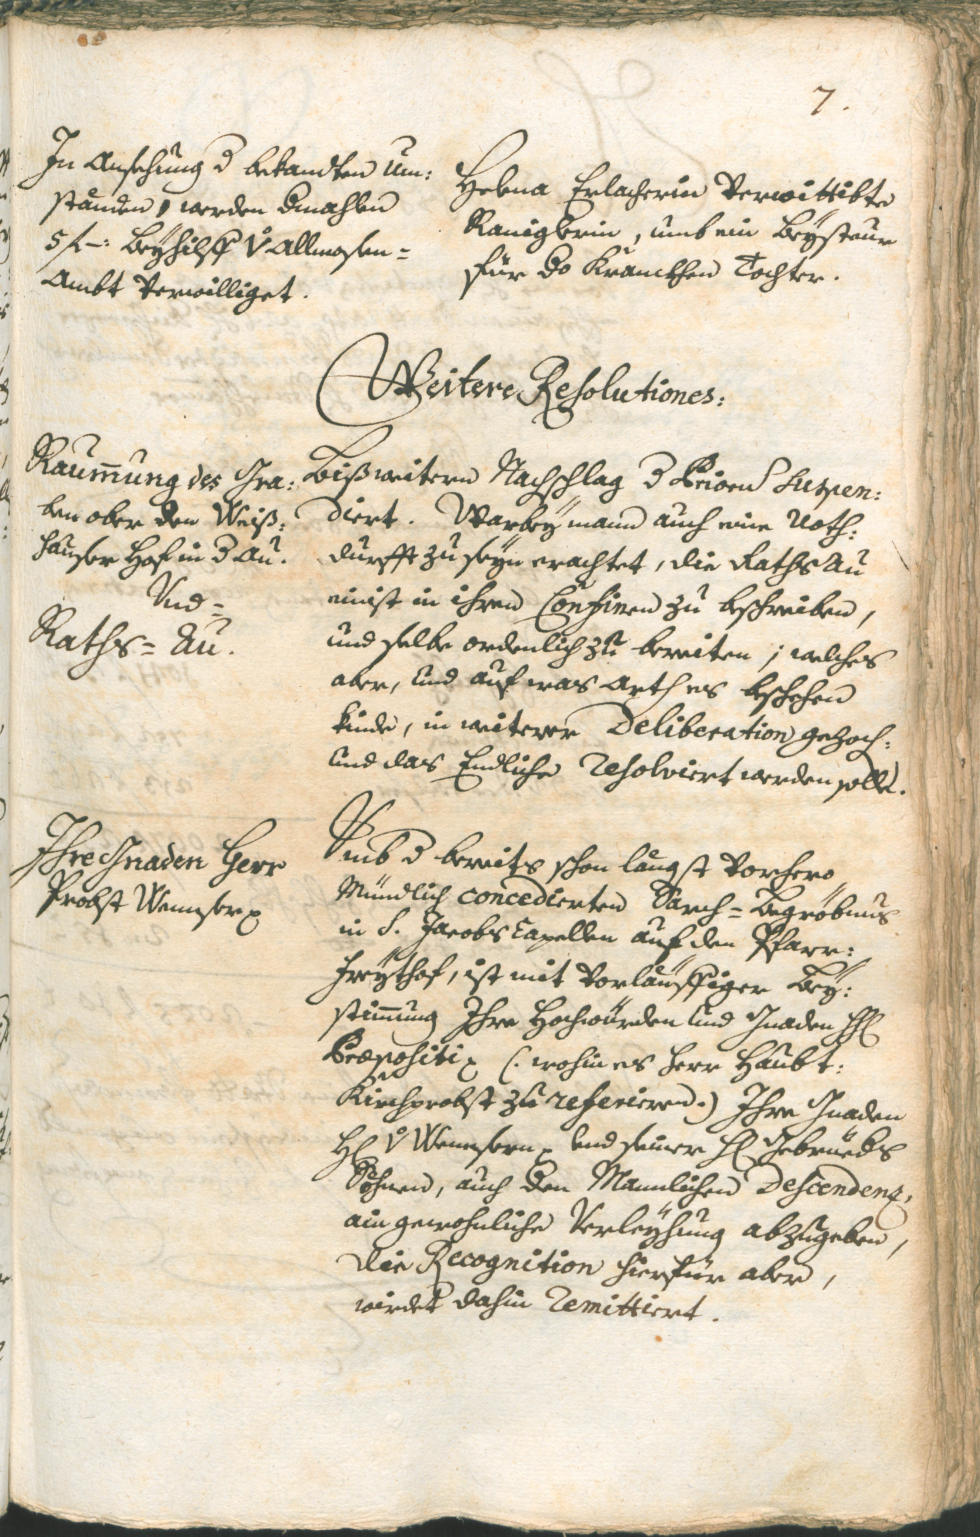 7.
In Ansehung d bekandten Um:
ständen, werden dmahlen
5 f –: Beyhilff v Allmosen=
Ambt verwilliget.
Helena Erlacherin verwittibte
umb ein Beysteur
für do Krancken Tochter.
Weitere Resolutiones:
Raumung des Gra:
ben ober den Weiß:
hauser Hof in d Au.
Und=
Raths= Au.
Biß weitern Nachschlag d Suspen:
diert. Warbey mann auch eine Noth:
durfft zu seyn erachtet, die Raths Au
einist in ihren Confinen zu beschreiben,
und selbe ordenlich zu bereiten; welches
aber, und auf was Arth es beschehen
kinde, in weiterer Deliberation gezoch:
und das Endliche resolviert werden solle.
Ihre Gnaden Herr
Probst Wenser
Umb d bereits schon längst vorhero
Mündlich concedierten Sarch= Begröbnus
in S. Jacobs Capellen auf den Pfarr:
Freythof, ist mit vorläuffiger Bey:
stimung Ihro Hochwürden und Gnaden H
Præpositi (: wohin es Herr Haubt:
Kirchprobst zu referieren:) Ihre Gnaden
H v Wensern und seiner H Gebrueds
Söhnen, auch den Mannlichen Descendenz,
ain gewohnliche Verleyhung abzugeben,
die Recognition hierfür aber,
wirdet dahin remittiert.